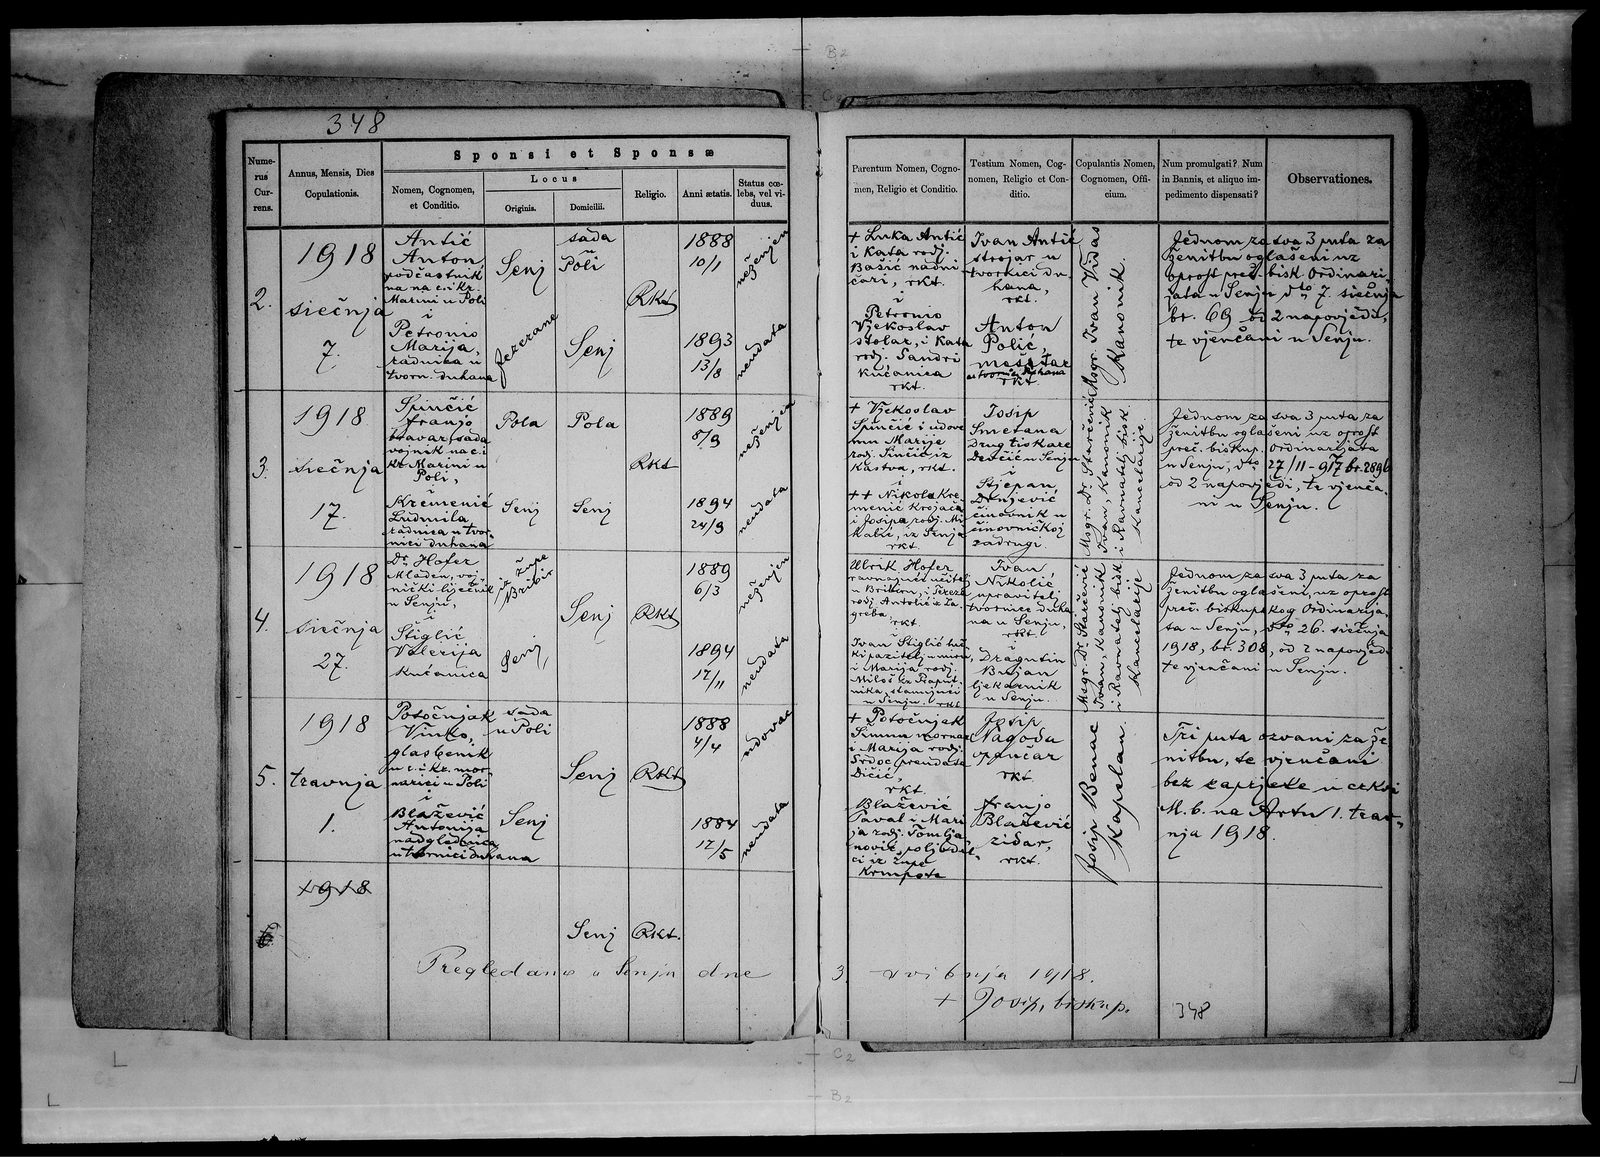 348
Numerus Currens.
Annus, Mensis, Dies Copulationis.
Sponsi et Sponsæ
Nomen, Cognomen, et Conditio.
Locus
Originis.
Domicilii.
Religio.
Anni ætatis.
Status cœlebs, vel viduus.
Parentum Nomen, Cognomen, Religio et Conditio.
Testium Nomen, Cognomen, Religio et Conditio.
Copulantis Nomen, Cognomen, Officium.
Num promulgati? Num in Bannis, et aliquo impedimento dispensati?
Observationes.
2.
1918
siečnja
7.
Antić
Anton
podčastnik
na c. i kr.
Marini u Poli
i
Petronio
Marija,
radnica u
tvorn. duhana
Senj
Jezerane
sada
u
Poli
Senj
Rkt
1888
10/1
1893
13/8
neženjen
neudata
+ Luka Antić
i Kata rodj.
Bašić nadni
čari, rkt.
i
Petronio
Vjekoslav
stolar, i Kata
rodj. Sandri
kućanica
rkt.
Ivan Antić
strojar u
tvornici du
hana,
rkt.
Anton
Polić,
mešetar
rkt.
Msgr. Ivan Vidas
Kanonik.
Jednom za sva 3 puta za
ženitbu oglašeni uz
oprost preč. bisk. Ordinari
jata u Senju dto 7. siečnja
br. 69 od 2 napovjedi,
te vjenčani u Senju.
3.
1918
siečnja
17.
Spinčić
Franjo
bravar, sada
vojnik na c. i
kr. Marini u
Poli,
i
Kremenić
Ludmila
radnica u tvor
nici duhana
Pola
Senj
Pola
Senj
Rkt
1889
8/9
1894
24/9
neženjen
neudata
+ Vjekoslav
Spinčić i udove
mu Marije
rodj. Sinčić iz
Kastva, rkt.
i
+ + Nikola Kre
menić Krojača
i Josipa rodj. Mi
kalić, iz Senja
rkt.
Josip
Smetana
Drug tiskare
Devčić u Senju
i
Stjepan
Donjević
činovnik u
činovničkoj
zadrugi.
Msgr. Dr. Starčević
Ivan, Kanonik
i Ravnatelj bisk.
Kancelarije.
Jednom za sva 3 puta za
ženitbu oglašeni uz oprost
preč. biskup. Ordinarijata
u Senju, dto 27/11 - 917 br. 2896
od 2 napovjedi, te vjenča
ni u Senju.
4.
1918
siečnja
27.
Dr. Hofer
Mladen, voj
nički liječnik
u Senju,
i
Štiglić
Valerija
Kućanica
iz župe
Bribir
Senj,
Senj
Rkt
1889
6/3
1894
17/11
neženjen
neudata
Ulrik Hofer
ravnajući učitelj
u Bribiru, i Tereza
rodj. Antolić iz Za
greba,
rkt.
Ivan Štiglić luč
ki pazitelj u miru
i Marija rodj.
Miloš
u Senju. rkt
Ivan
Nikolić
upravitelj
tvornice duha
na u Senju,
rkt.
i
Dragutin
Bujan
ljekarnik
u Senju.
Msgr. Dr. Starčević
Ivan, Kanonik
i Ravnatelj bisk.
Kancelarije
Jednom za sva 3 puta za
ženitbu oglašeni, uz oprost
preč. biskupskog Ordinarija
ta u Senju, dto 26. siečnja
1918, br. 308, od 2 napovjedi
te vjenčani u Senju.
5.
1918
travnja
1.
Potočnjak
Vinko,
glasbenik
u c. i kr. mor
narici u Poli
i
Blažević
Antonija
nadglednica
u tvornici duhana
sada
u Poli
Senj
Senj
Rkt
1888
4/4
1884
17/5
udovac
neudata
+ Potočnjak
Šimun mornar
i Marija rodj.
Srdoč preudata
Dičić,
rkt.
Blažević
Paval i Mari
ja rodj. Tomlja
nović, poljodel
ci iz župe
Krmpote
Josip
Nagoda
opančar
rkt
Franjo
Blažević
zidar,
rkt.
Josip Benac
Kapelan.
Tri puta ozvani za že
nitbu, te vjenčani
bez zaprjeke u crkvi
M. b. na Artu 1. trav
nja 1918.
1918
6
Senj
Rkt.
Pregledano u Senju dne 3. svibnja 1918.
+ Josip, biskup.
348